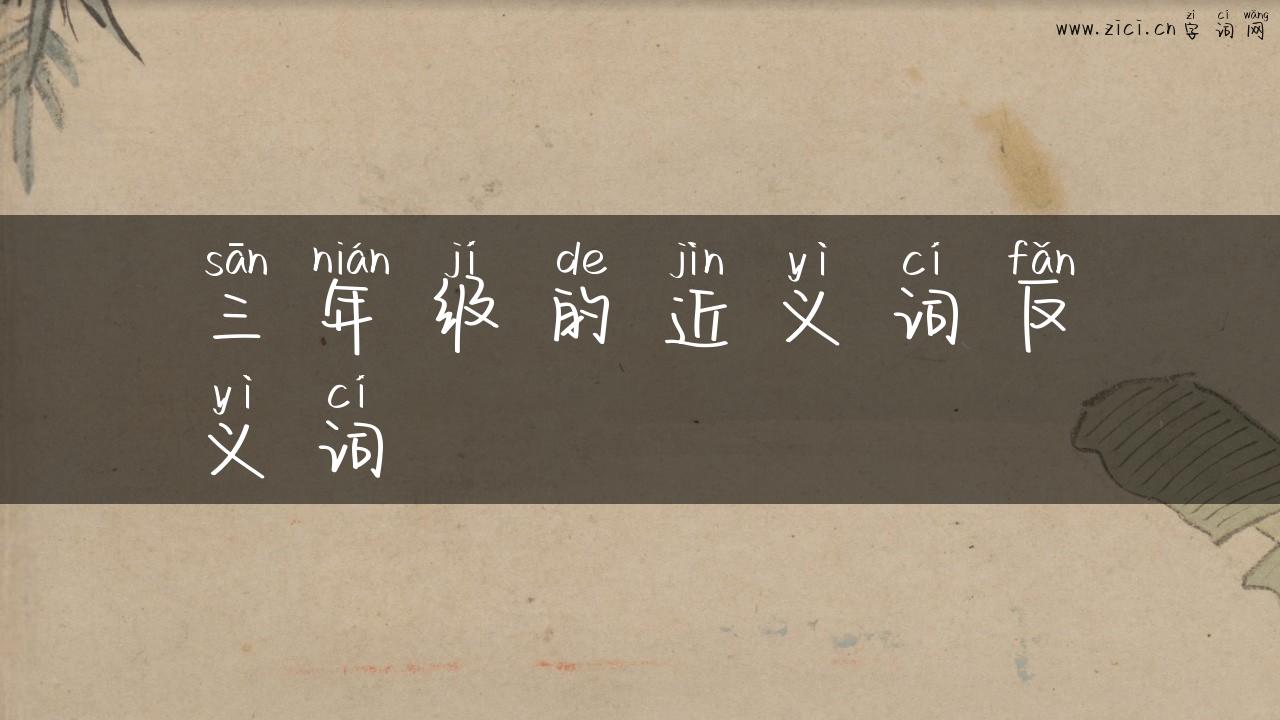 zì cí wǎng
www.zici.cn 字词网
sān nián jí de jìn yì cí fǎn
三年级的近义词反
yì cí
义词